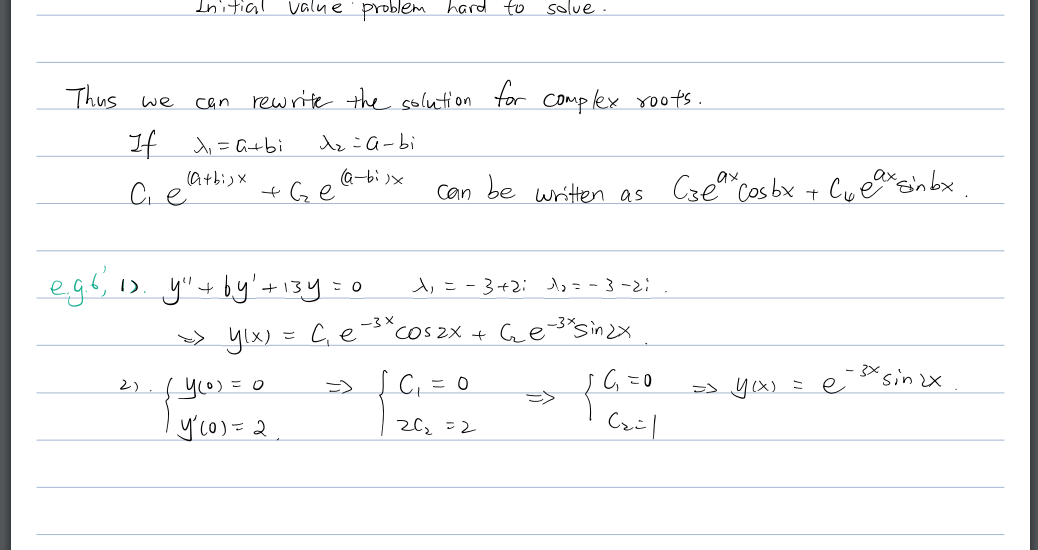 Initial value problem hard to solve.
Thus we can rewrite the solution for complex roots.
If λ₁ = a+bi λ₂ = a-bi
C₁ e^(a+bi)x + C₂ e^(a-bi)x can be written as C₃e^ax cosbx + C₄e^ax sinbx.
e.g.6', 1). y'' + 6y' + 13y = 0 λ₁ = -3+2i λ₂ = -3-2i.
⇒ y(x) = C₁ e^-3x cos2x + C₂e^-3x sin2x.
2). { y(0) = 0 ⇒ { C₁ = 0 ⇒ { C₁ = 0 ⇒ y(x) = e^-3x sin2x.
y'(0) = 2. 2C₂ = 2 C₂ = 1